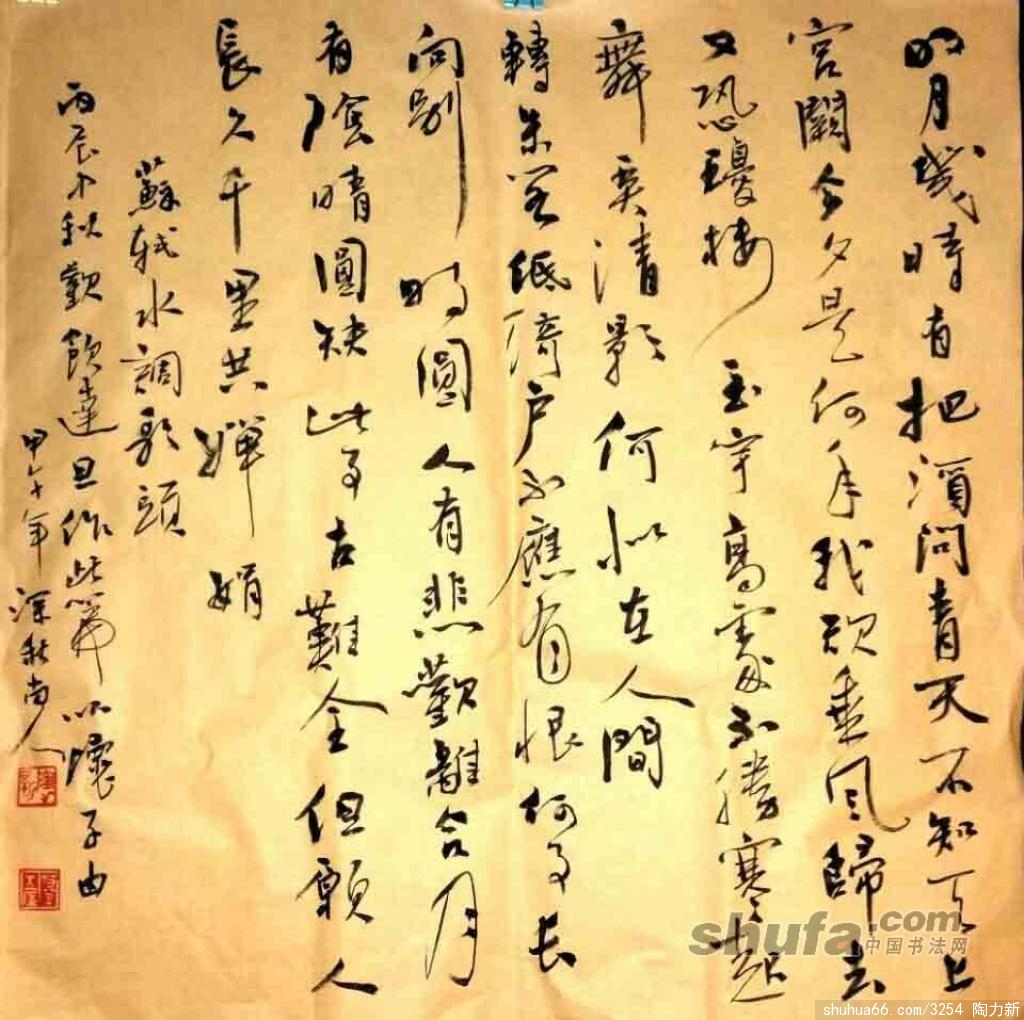 明月幾時有把酒問青天不知天上
宮闕今夕是何年我欲乘風歸去
又恐瓊樓玉宇高處不勝寒起
舞弄清影何似在人間
轉朱閣低綺戶不應有恨何事長
向別時圓人有悲歡離合月
有陰晴圓缺此事古難全但願人
長久千里共嬋娟
蘇軾水調歌頭
丙辰中秋歡飲達旦作此篇以懷子由
甲午年深秋尚人
shufa.com
中国书法网
shuhua66.com/3254 陶力新